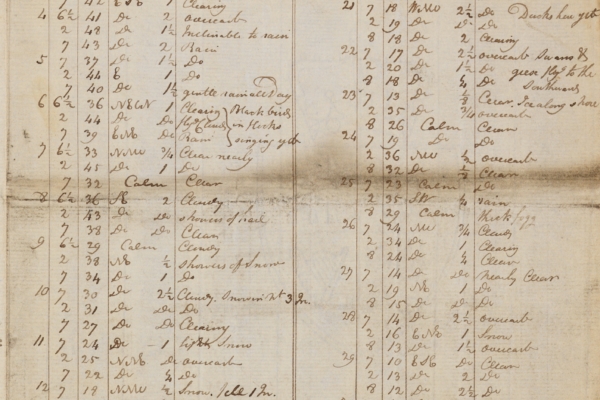 7 42 ESE 1 Clearing
4 6½ 41 Do 2 overcast
2 48 Do 1½ Inclinable to rain
7 43 Do 2 Rain
5 7 37 Do 1½ Do
2 44 E 1 Do
7 40 Do 1½ gentle rain all Day
6 6½ 36 NEbN 1 Clearing Black birds
2 44 Do Do in flocks
7 39 ENE Do rain singing yet
7 6½ 33 NNW ¾ Clear nearly
2 45 Do 1 Do
7 32 Calm Clear
8 6½ 36 2 Cloudy
2 43 Do Do showers of hail
7 38 Do Do Clear
9 6½ 29 Calm Cloudy
2 38 NE ½ showers of Snow
7 34 Do 1 Do
10 7 30 Do 2½ Cloudy. Snow in Nt 3 In.
2 31 Do Do Do
7 27 Do Do Clearing
11 7 24 Do 1 light Snow
2 25 NNE Do overcast
7 22 Do Do
12 7 18 NNW ½ Snow. fell 1 In.
21 7 18 NNW 2½ Do Ducks here yet
2 19 Do Do Do
8 18 Do 2 Clearing
22 7 17 Do 2½ overcast Swans &
2 20 Do 1½ Do geese flyg to the
8 18 Do Do Southward
23 7 13 Do Clear. Ice along shore
2 35 Do ¾ overcast
8 26 Calm Clear
24 7 19 Do Do
2 36 NW ½ overcast
8 32 Do Clear
25 7 23 Calm Do
2 35 SW rain
8 29 Calm thick fogg
26 7 24 NW ¾ Cloudy
2 34 Do 1 Clearing
8 24 Do Clear
27 7 14 Do Do nearly Clear
2 19 NE 1 Do
8 15 Do Do Do
28 7 14 Do 2½ overcast
2 16 ENE 1 Snow
8 13 Do 1½ overcast
29 7 10 ESE Do Clear
2 13 Do 2 Do
8 12 Do 2½ Do